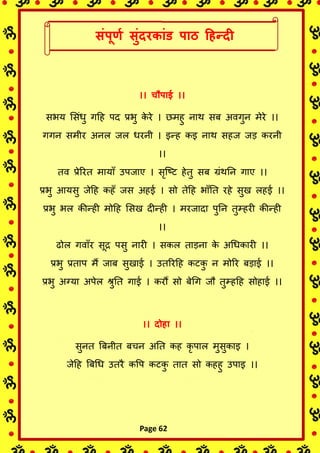 संपूर्ण सुंदरकांड पाठ हिन्दी
।। चौपाई ।।
सभय सिंधु गहि पद प्रभु केरे । छमहु नाथ सब अवगुन मेरे ।।
गगन समीर अनल जल धरनी । इन्ह कइ नाथ सहज जड़ करनी
।।
तव प्रेरित मायाँ उपजाए । सृष्टि हेतु सब ग्रंथनि गाए ।।
प्रभु आयसु जेहि कहँ जस अहई । सो तेहि भाँति रहे सुख लहई ।।
प्रभु भल कीन्ही मोहि सिख दीन्ही । मरजादा पुनि तुम्हरी कीन्ही
।।
ढोल गवाँर सूद्र पसु नारी । सकल ताड़ना के अधिकारी ।।
प्रभु प्रताप मैं जाब सुखाई । उतरिहि कटकु न मोरि बड़ाई ।।
प्रभु अग्या अपेल श्रुति गाई । करौं सो बेगि जौ तुम्हहि सोहाई ।।
।। दोहा ।।
सुनत बिनीत बचन अति कह कृपाल मुसुकाइ ।
जेहि बिधि उतरै कपि कटकु तात सो कहहु उपाइ ।।
Page 62